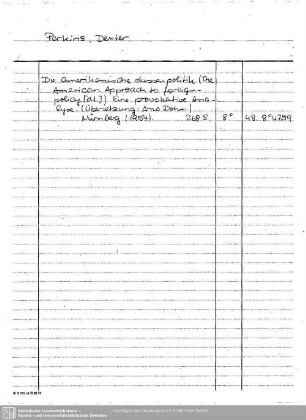 Perkins, Dexter
Die amerikanische Aussenpolitik (The
American Approach to foreign-
policy [dt.]) Eine provokative Ana-
lyse. (Übersetzung: Arno Dohm)
Nürnberg (1954). 268 S. 8° 48. 8° 4759
Sächsische Landesbibliothek –
Staats- und Universitätsbibliothek Dresden